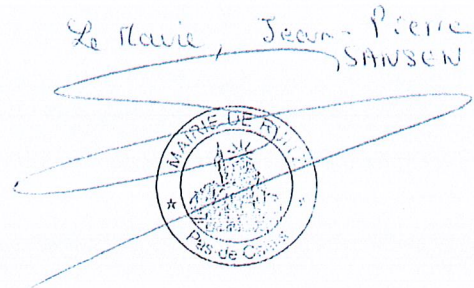 Le Maire, Jean-Pierre
SANSEN
MAIRIE DE
Pas-de-Calais